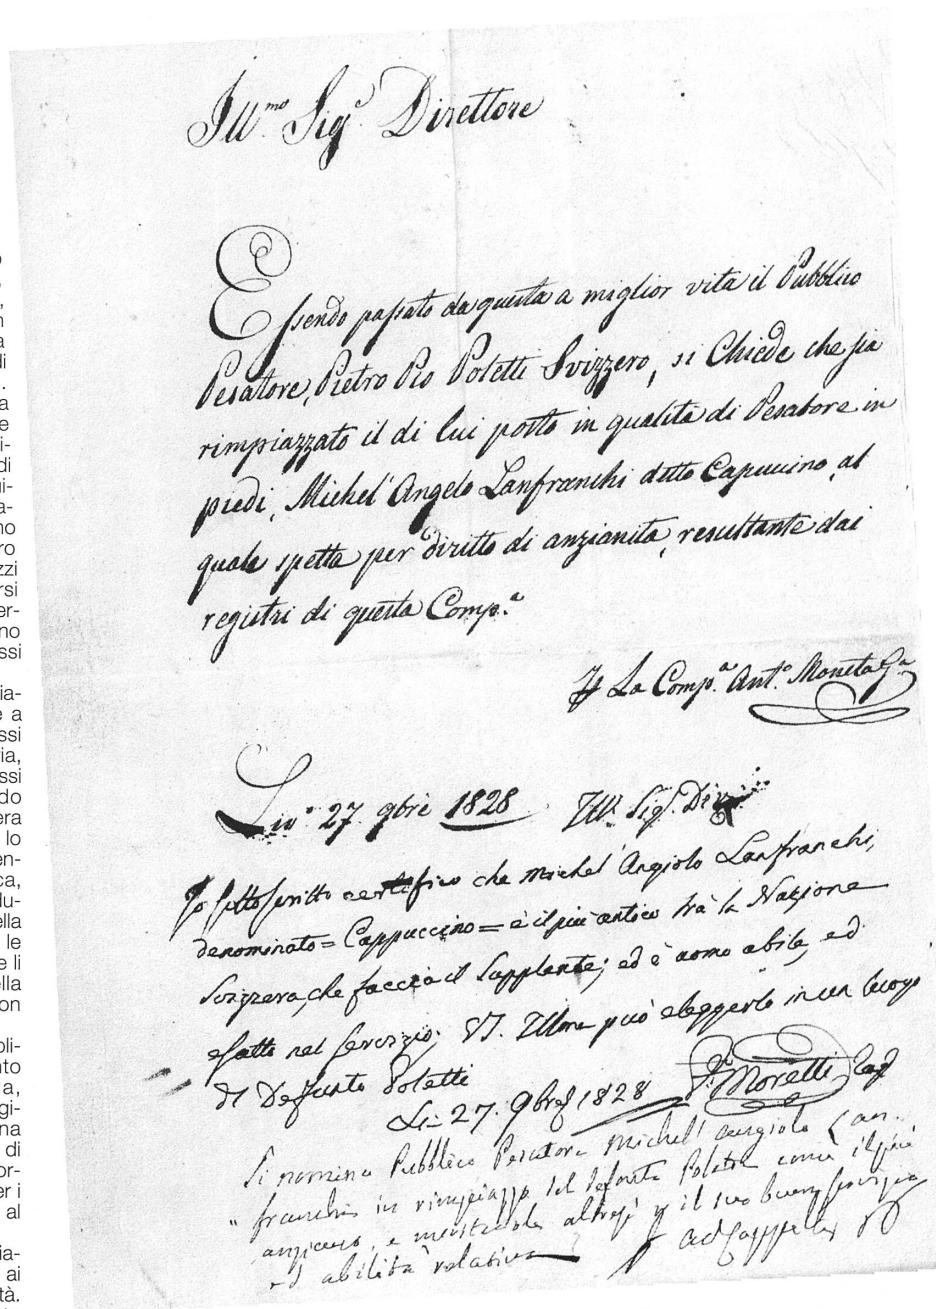 Ill.mo Sig.e Direttore
Essendo passato da questa a miglior vita il Pubblico
Pesatore, Pietro Pio Poletti Svizzero, si Chiede che sia
rimpiazzato il di lui posto in qualità di Pesatore in
piedi, Michel' Angelo Lanfranchi detto Capuccino, al
quale spetta per diritto di anzianita, resultante dai
registri di questa Comp.a
La Comp.a Ant.o Moneta
Liv.o 27. 9bre 1828 Ill. Sig. Dir
Io sottoscritto certifico che Michel' Angiolo Lanfranchi,
denominato = Cappuccino = è il più antico trà la Nazione
Svizzera, che faccia il Supplente; ed è uomo abile, ed
esatto nel servizio; VS. Illma può eleggerlo in un luogo
di Defunto Poletti
Li 27. 9bre 1828 Moretti
Si nomina Pubblico Pesatore Michel' Angiolo Lan
franchi in rimpiazzo del defonto Poletti come il più
anziano, e meritevole altresì il suo buon servizio
ed abilità relativa
o
,
n
a
di
.
a
e
i-
di
i-
a-
no
ro
zzi
rsi
er-
no
ssi
ia-
e a
ssi
ria,
ssi
do
era
lo
en-
ca,
du-
ella
le
e li
ella
on
oli-
nto
a,
gi-
na
di
or-
er i
al
ia-
ai
tà.